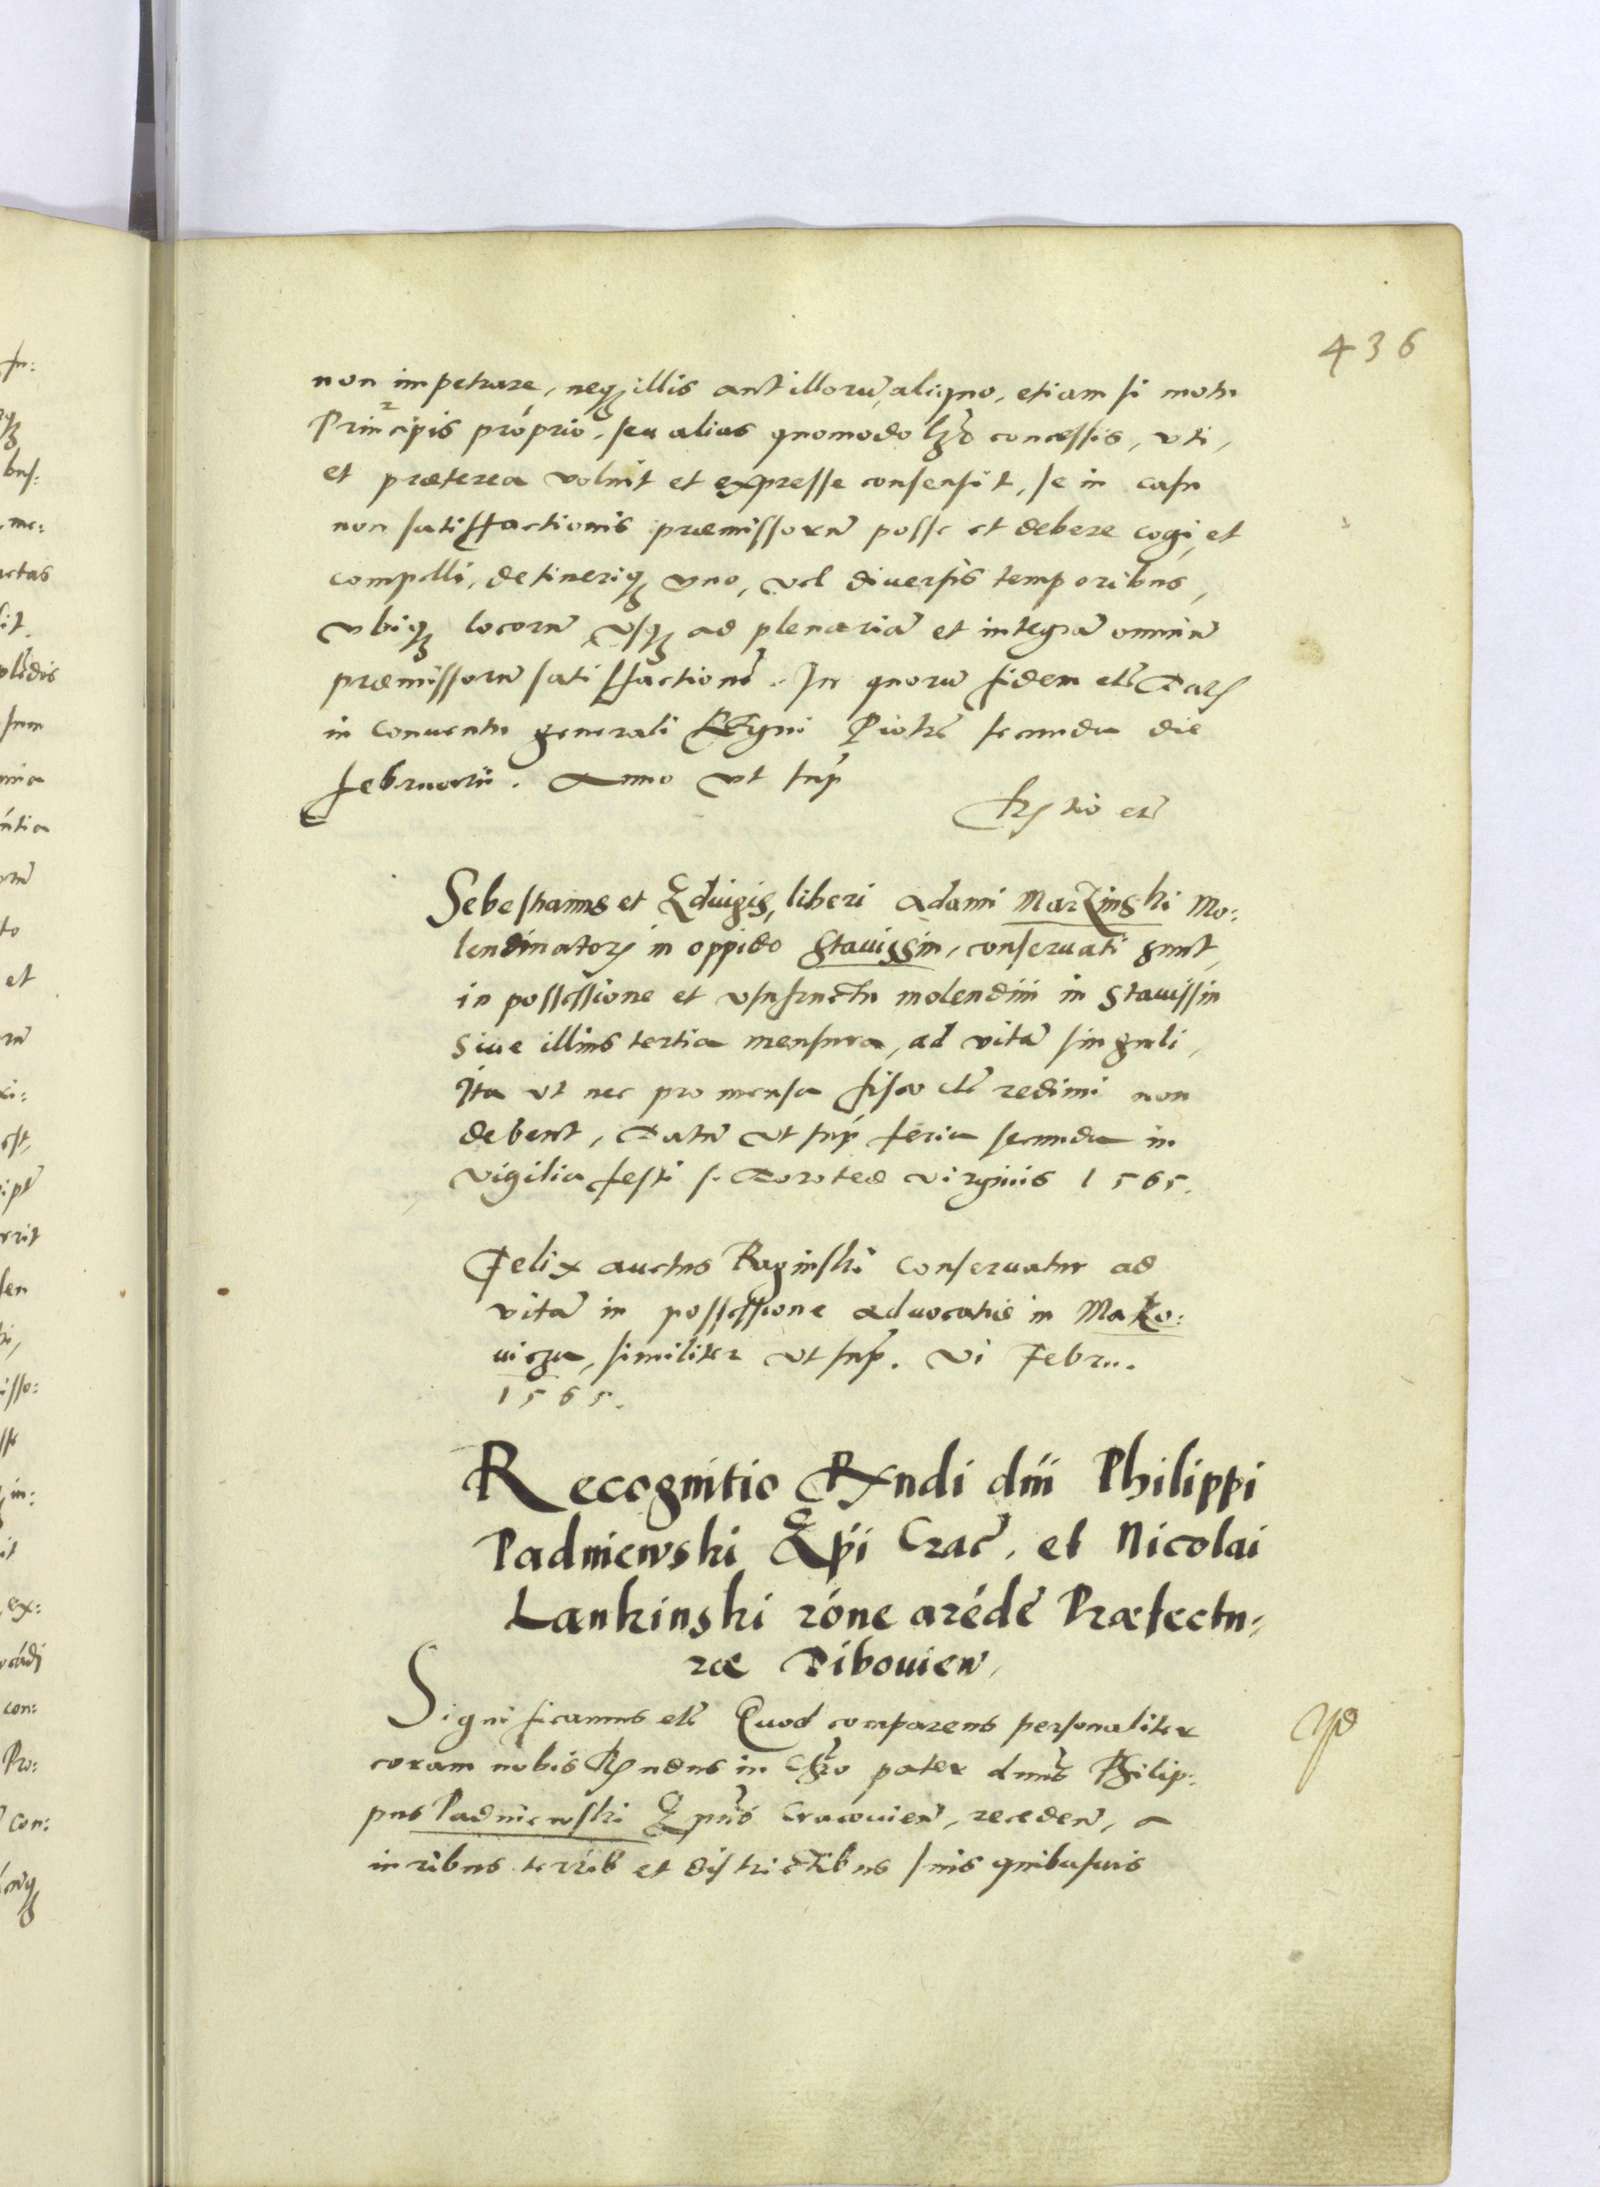 436
non impetrare, neq illis aut illorũ, aliquo, etiam si motu
Principis próprio, seu alias quomodo concessis, vti,
et præterea voluit et expresse consensit, se in casu
non satisfactionis præmissorũ posse et debere cogi, et
compelli, detineriq vno, vel diuersis temporibus,
vbiq locorũ vsq ad plenariã et integrã omniũ
præmissorũ satisfactionẽ. In quorũ fidem etc Dat
in conuentu generali Regni Piotr secunda die
februarii. Anno vt sup
tio
Sebestianus et Edwigis, liberi Adami Marzinski Mo:
lendinatoris in oppido Stauissin, conseruati sunt,
in possessione et vsufructu molendini in Stauissin
siue illius tertia mensura, ad vitã singuli,
Ita vt nec pro mensa fisco etc redimi non
debent, Datũ vt sup feria secunda in
vigilia festi s. Doroteæ virginis 1565.
Felix auctus Raginski conseruatur ad
vitã in possessione aduocatiæ in Mako:
uicza, similiter vt sup. vi Febru.
1565.
Recognitio Rxndi dñi Philippi
Padniewski Epi Crac, et Nicolai
Lankinski róne aréde Præfectu:
ræ Dibouien,
Significamus etc Quod comparens personaliter
coram nobis Rndus in Chro pater dnus Philip:
pus Padniewski Epus Cracouien, receden, a
iuribus terris et districtibus suis quibusuis